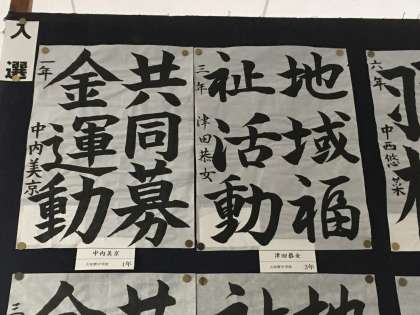 入選
共同募
金運動
一年
中内美京
中内美京
1年
地域福
祉活動
三年
津田恭女
津田恭女
3年
六年
中西悠菜
共
金
地
祉
三